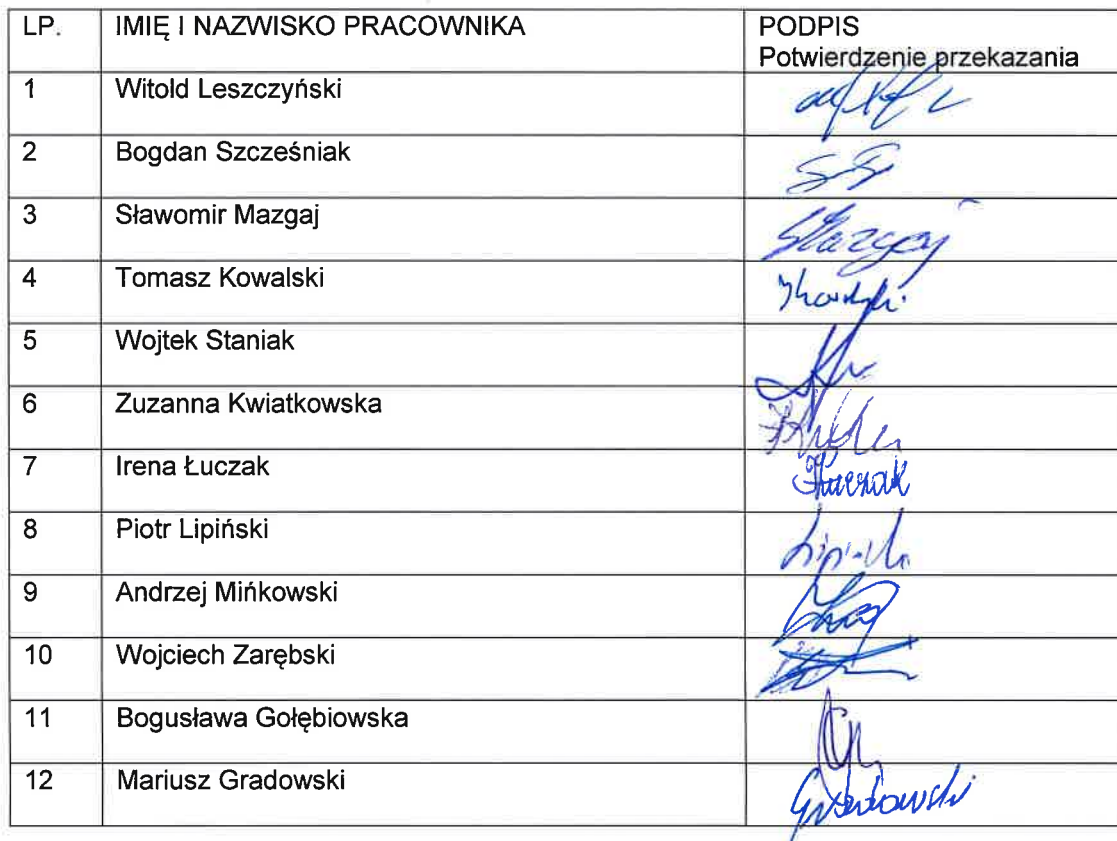 LP. IMIĘ I NAZWISKO PRACOWNIKA PODPIS
Potwierdzenie przekazania
1 Witold Leszczyński
2 Bogdan Szcześniak
3 Sławomir Mazgaj SMazgaj
4 Tomasz Kowalski
5 Wojtek Staniak
6 Zuzanna Kwiatkowska
7 Irena Łuczak Łuczak
8 Piotr Lipiński
9 Andrzej Mińkowski
10 Wojciech Zarębski
11 Bogusława Gołębiowska
12 Mariusz Gradowski Gradowski